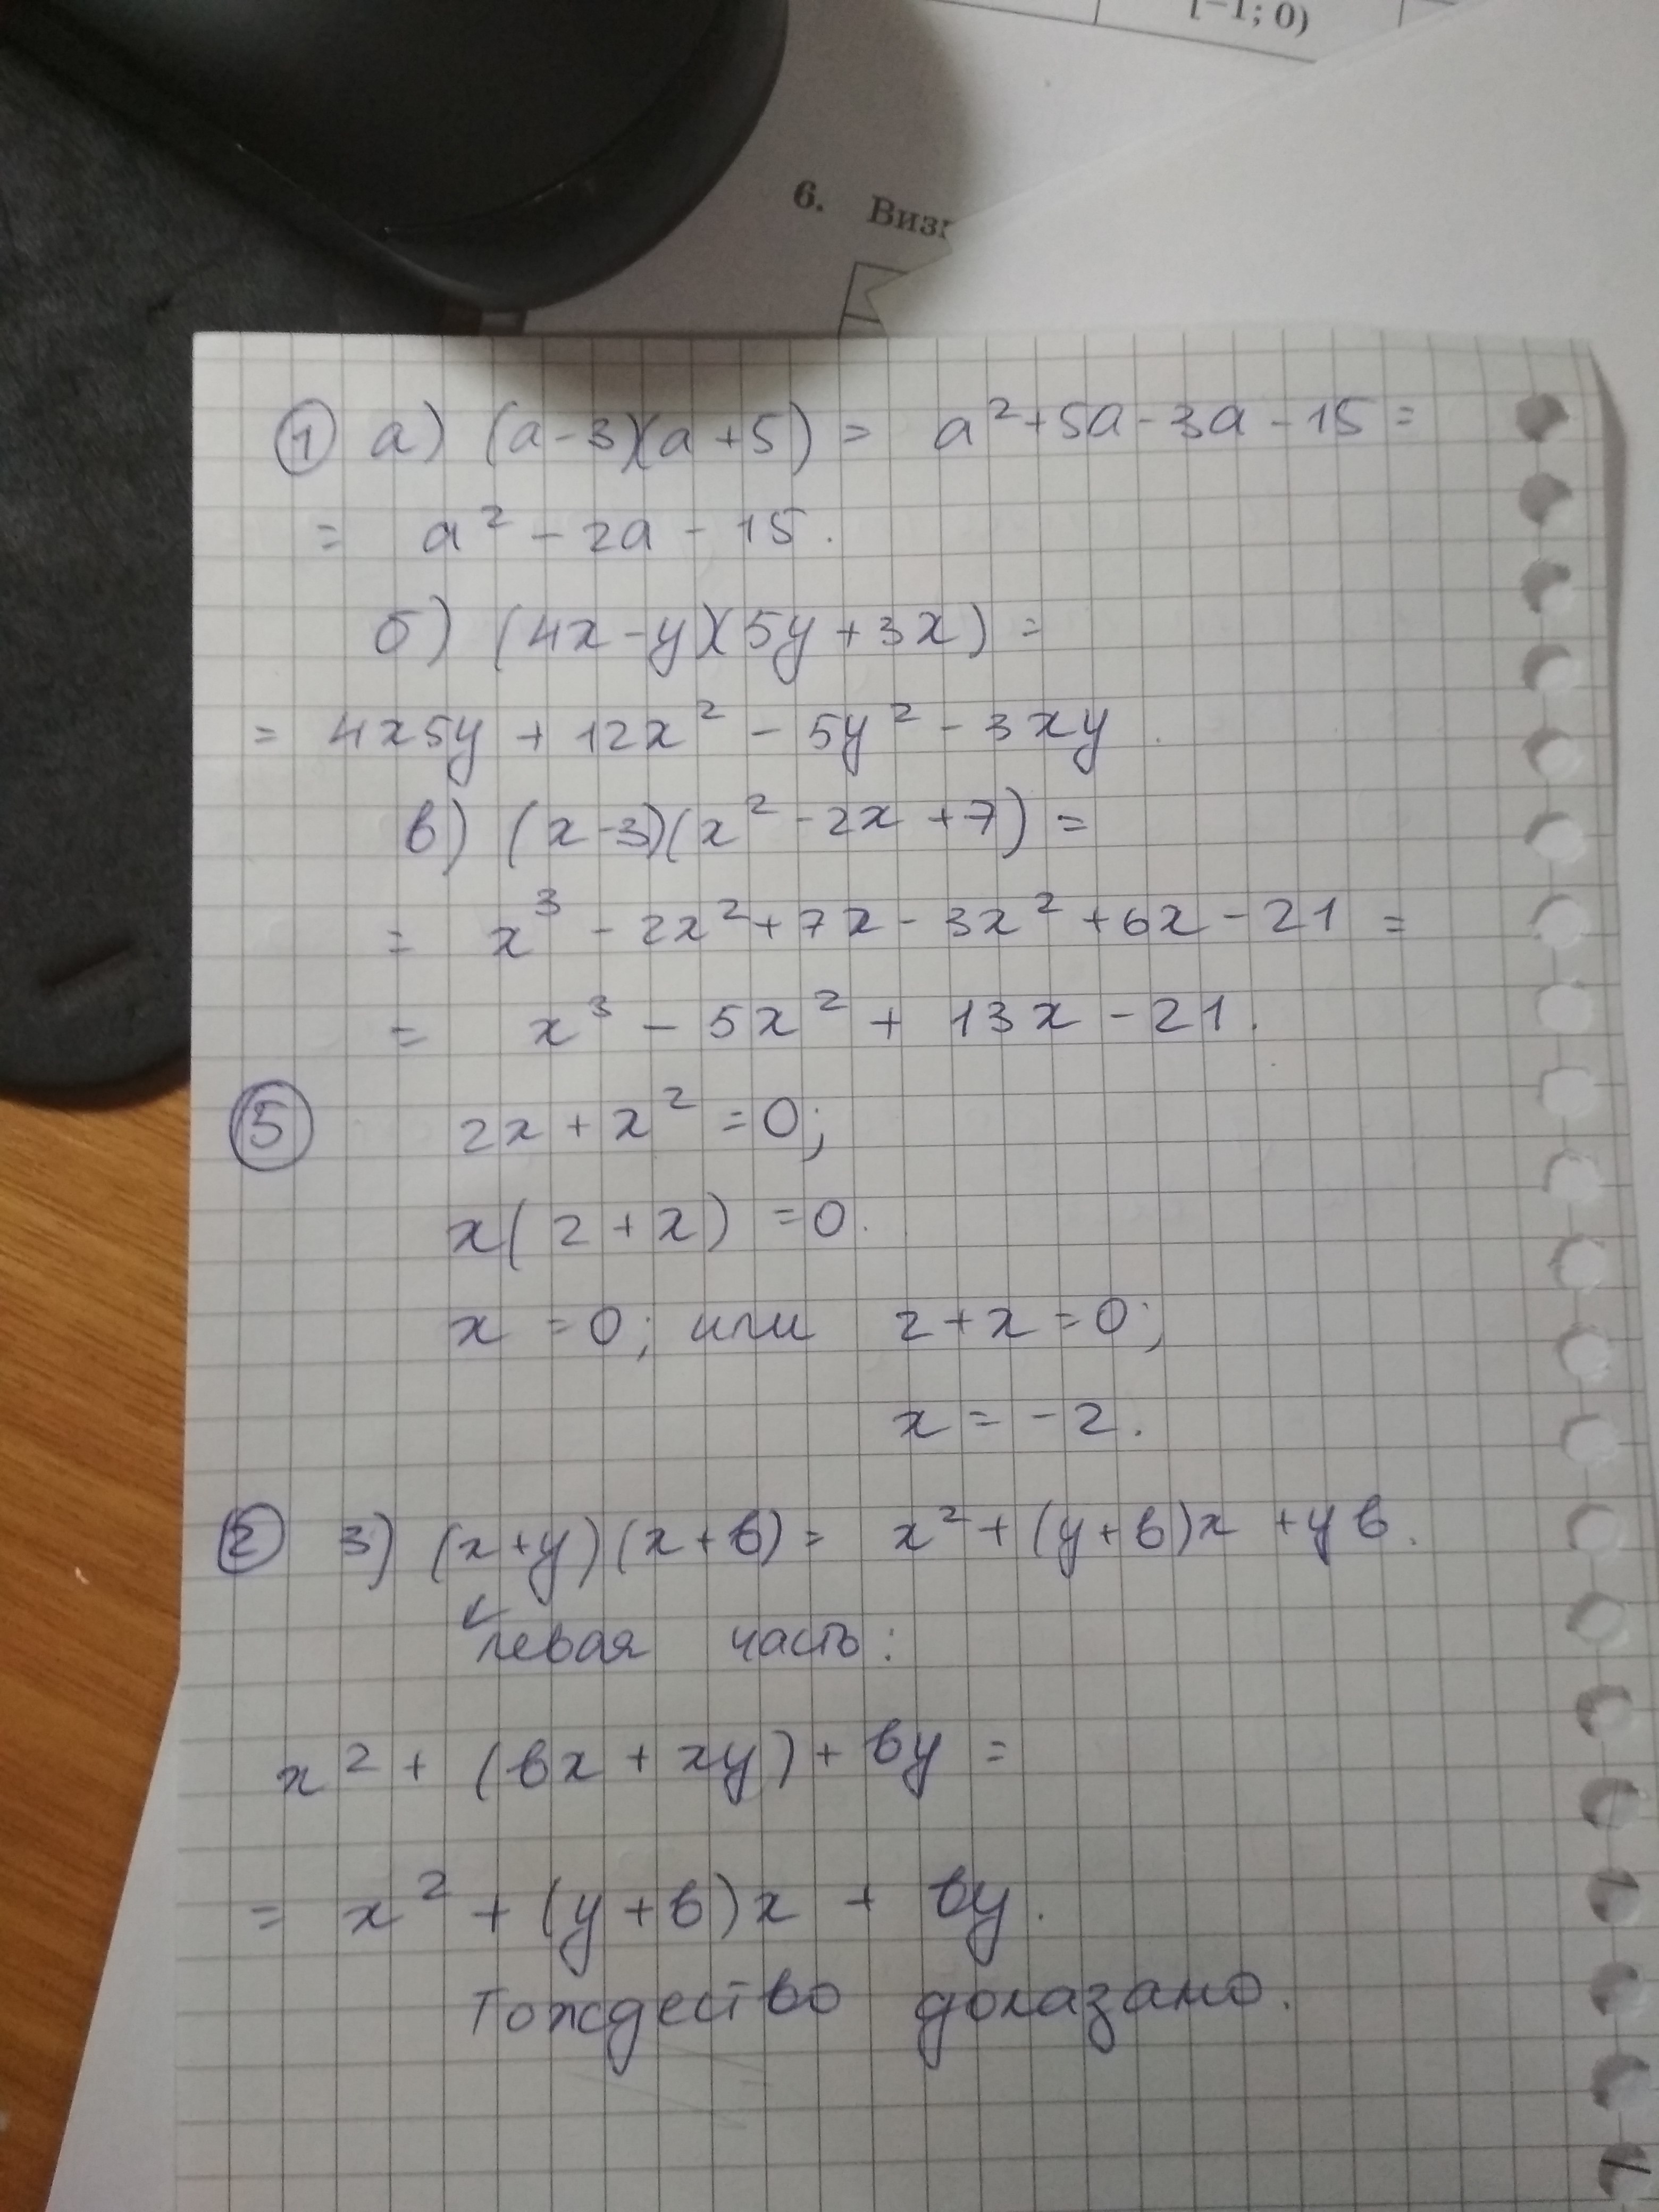 [-1; 0)
6.
① а) (a-3)(a+5) = a²+5a-3a-15=
= a² - 2a - 15.
б) (4x-y)(5y+3x) =
= 4x5y + 12x² - 5y² - 3xy.
в) (x-3)(x²-2x+7) =
= x³ - 2x²+7x-3x²+6x-21 =
= x³ - 5x² + 13x - 21.
⑤ 2x+x² =0;
x(2+x) =0.
x =0; или 2+x=0;
x = -2.
② 3) (x+y)(x+b)= x²+(y+b)x +yb.
↙
левая часть:
x² + (bx + xy) + by =
= x² + (y+b)x + by.
Тождество доказано.